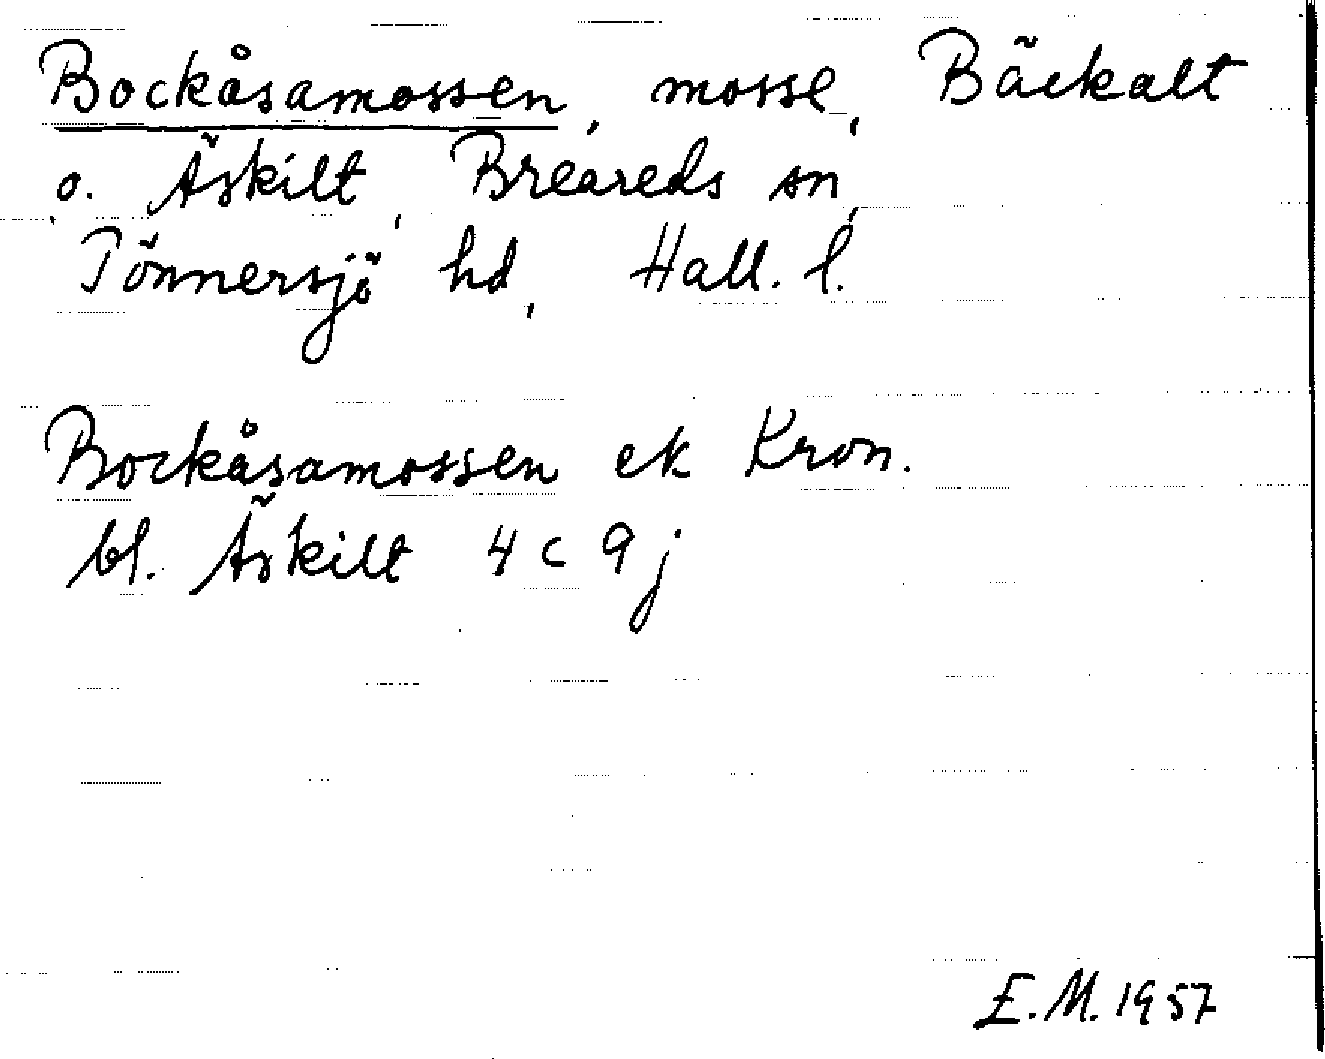 Bockåsamossen, mosse, Bäckalt
o. Äskilt, Breareds sn,
Tönnersjö hd, Hall. l.
Bockåsamossen ek Kron.
bl. Äskilt 4 c 9 j
E.M. 1957